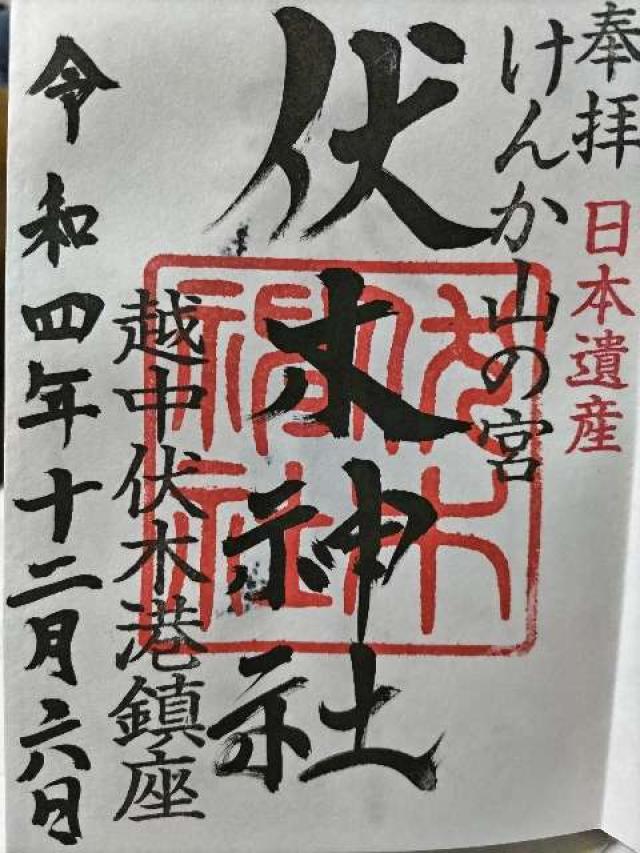 奉拝
日本遺産
けんか山の宮
伏木神社
越中伏木港鎮座
令和四年十二月六日